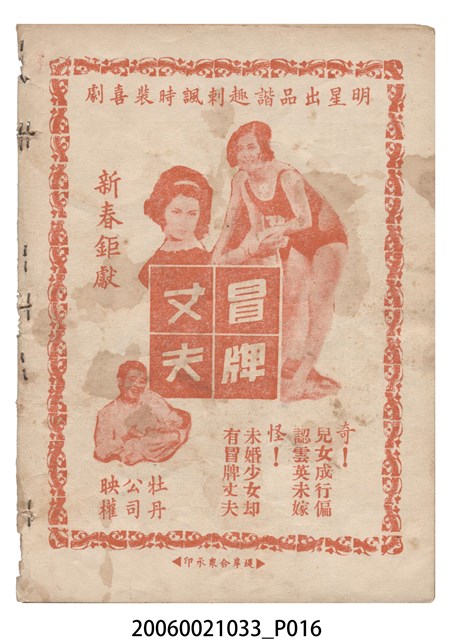 明星出品諧趣刺諷時裝喜劇
新春鉅獻
冒牌
丈夫
奇！
兒女成行偏
認雲英未嫁
怪！
未婚少女却
有冒牌丈夫
牡丹
公司
映權
印承眾合岸
20060021033_P016